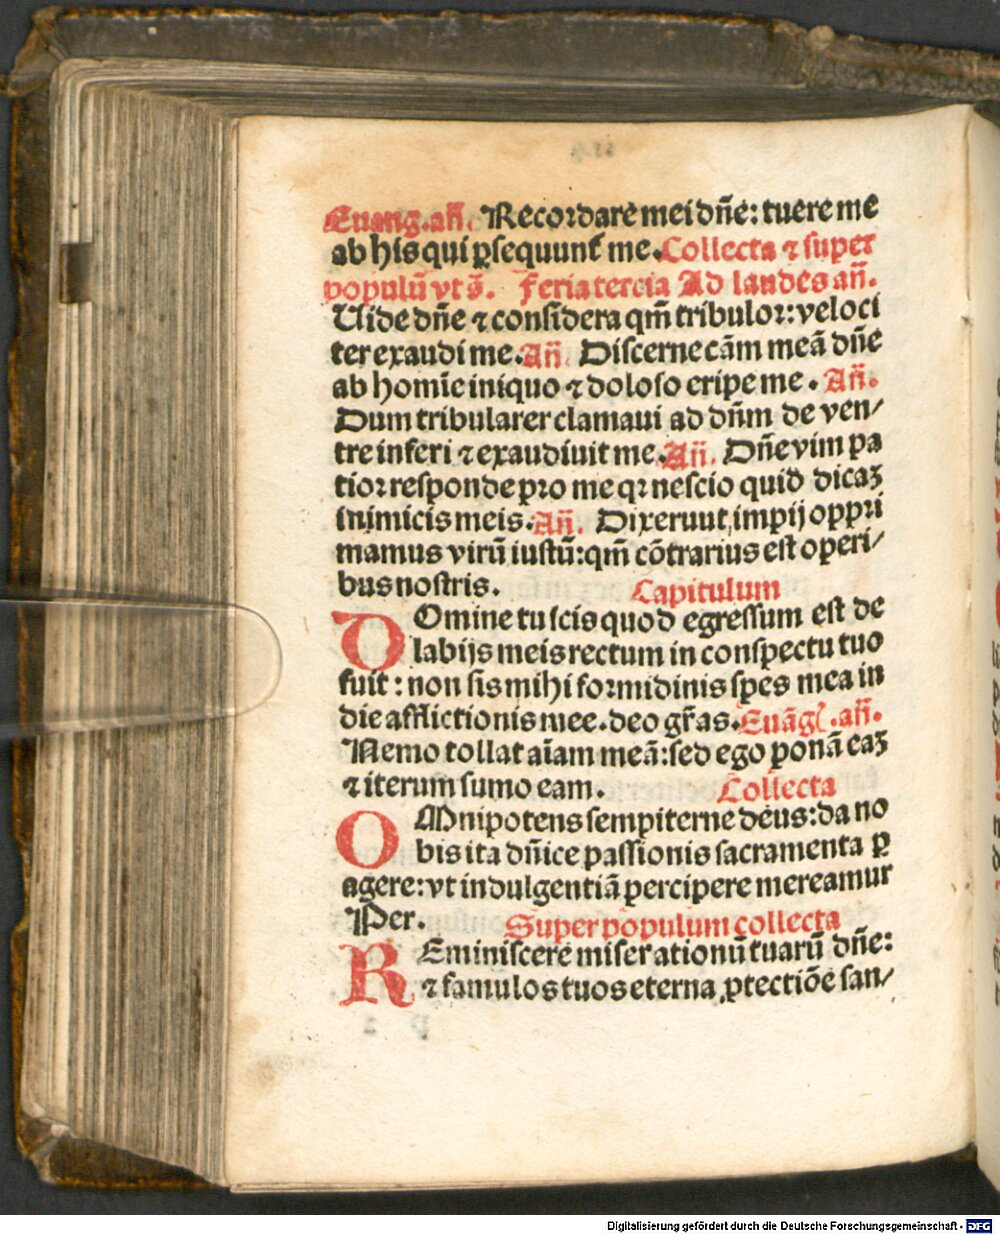 Euang. an̄. Recordare mei dn̄e: tuere me
ab his qui ꝑsequunt᷑ me. Collecta ⁊ super
populū vt s̄. Feria tercia Ad laudes an̄.
Uide dn̄e ⁊ considera qm̄ tribulor: veloci
ter exaudi me. An̄. Discerne cām meā dn̄e
ab homīe iniquo ⁊ doloso eripe me. An̄.
Dum tribularer clamaui ad dn̄m de ven/
tre inferi ⁊ exaudiuit me. An̄. Dn̄e vim pa
tior responde pro me qꝛ nescio quid dicaꝫ
inimicis meis. An̄. Dixeruut impij oppri
mamus virū iustū: qm̄ cōtrarius est operi/
bus nostris. Capitulum
DOmine tu scis quod egressum est de
labijs meis rectum in conspectu tuo
fuit: non sis mihi formidinis spes mea in
die afflictionis mee. deo gr̄as. Euāgl̓. an̄.
Nemo tollat aīam meā: sed ego ponā eaꝫ
⁊ iterum sumo eam. Collecta
OMnipotens sempiterne deus: da no
bis ita dn̄ice passionis sacramenta ꝑ
agere: vt indulgentiā percipere mereamur
Per. Super populum collecta
REminiscere miserationū tuarū dn̄e:
⁊ famulos tuos eterna ꝓtectiōe san/
Digitalisierung gefördert durch die Deutsche Forschungsgemeinschaft - DFG